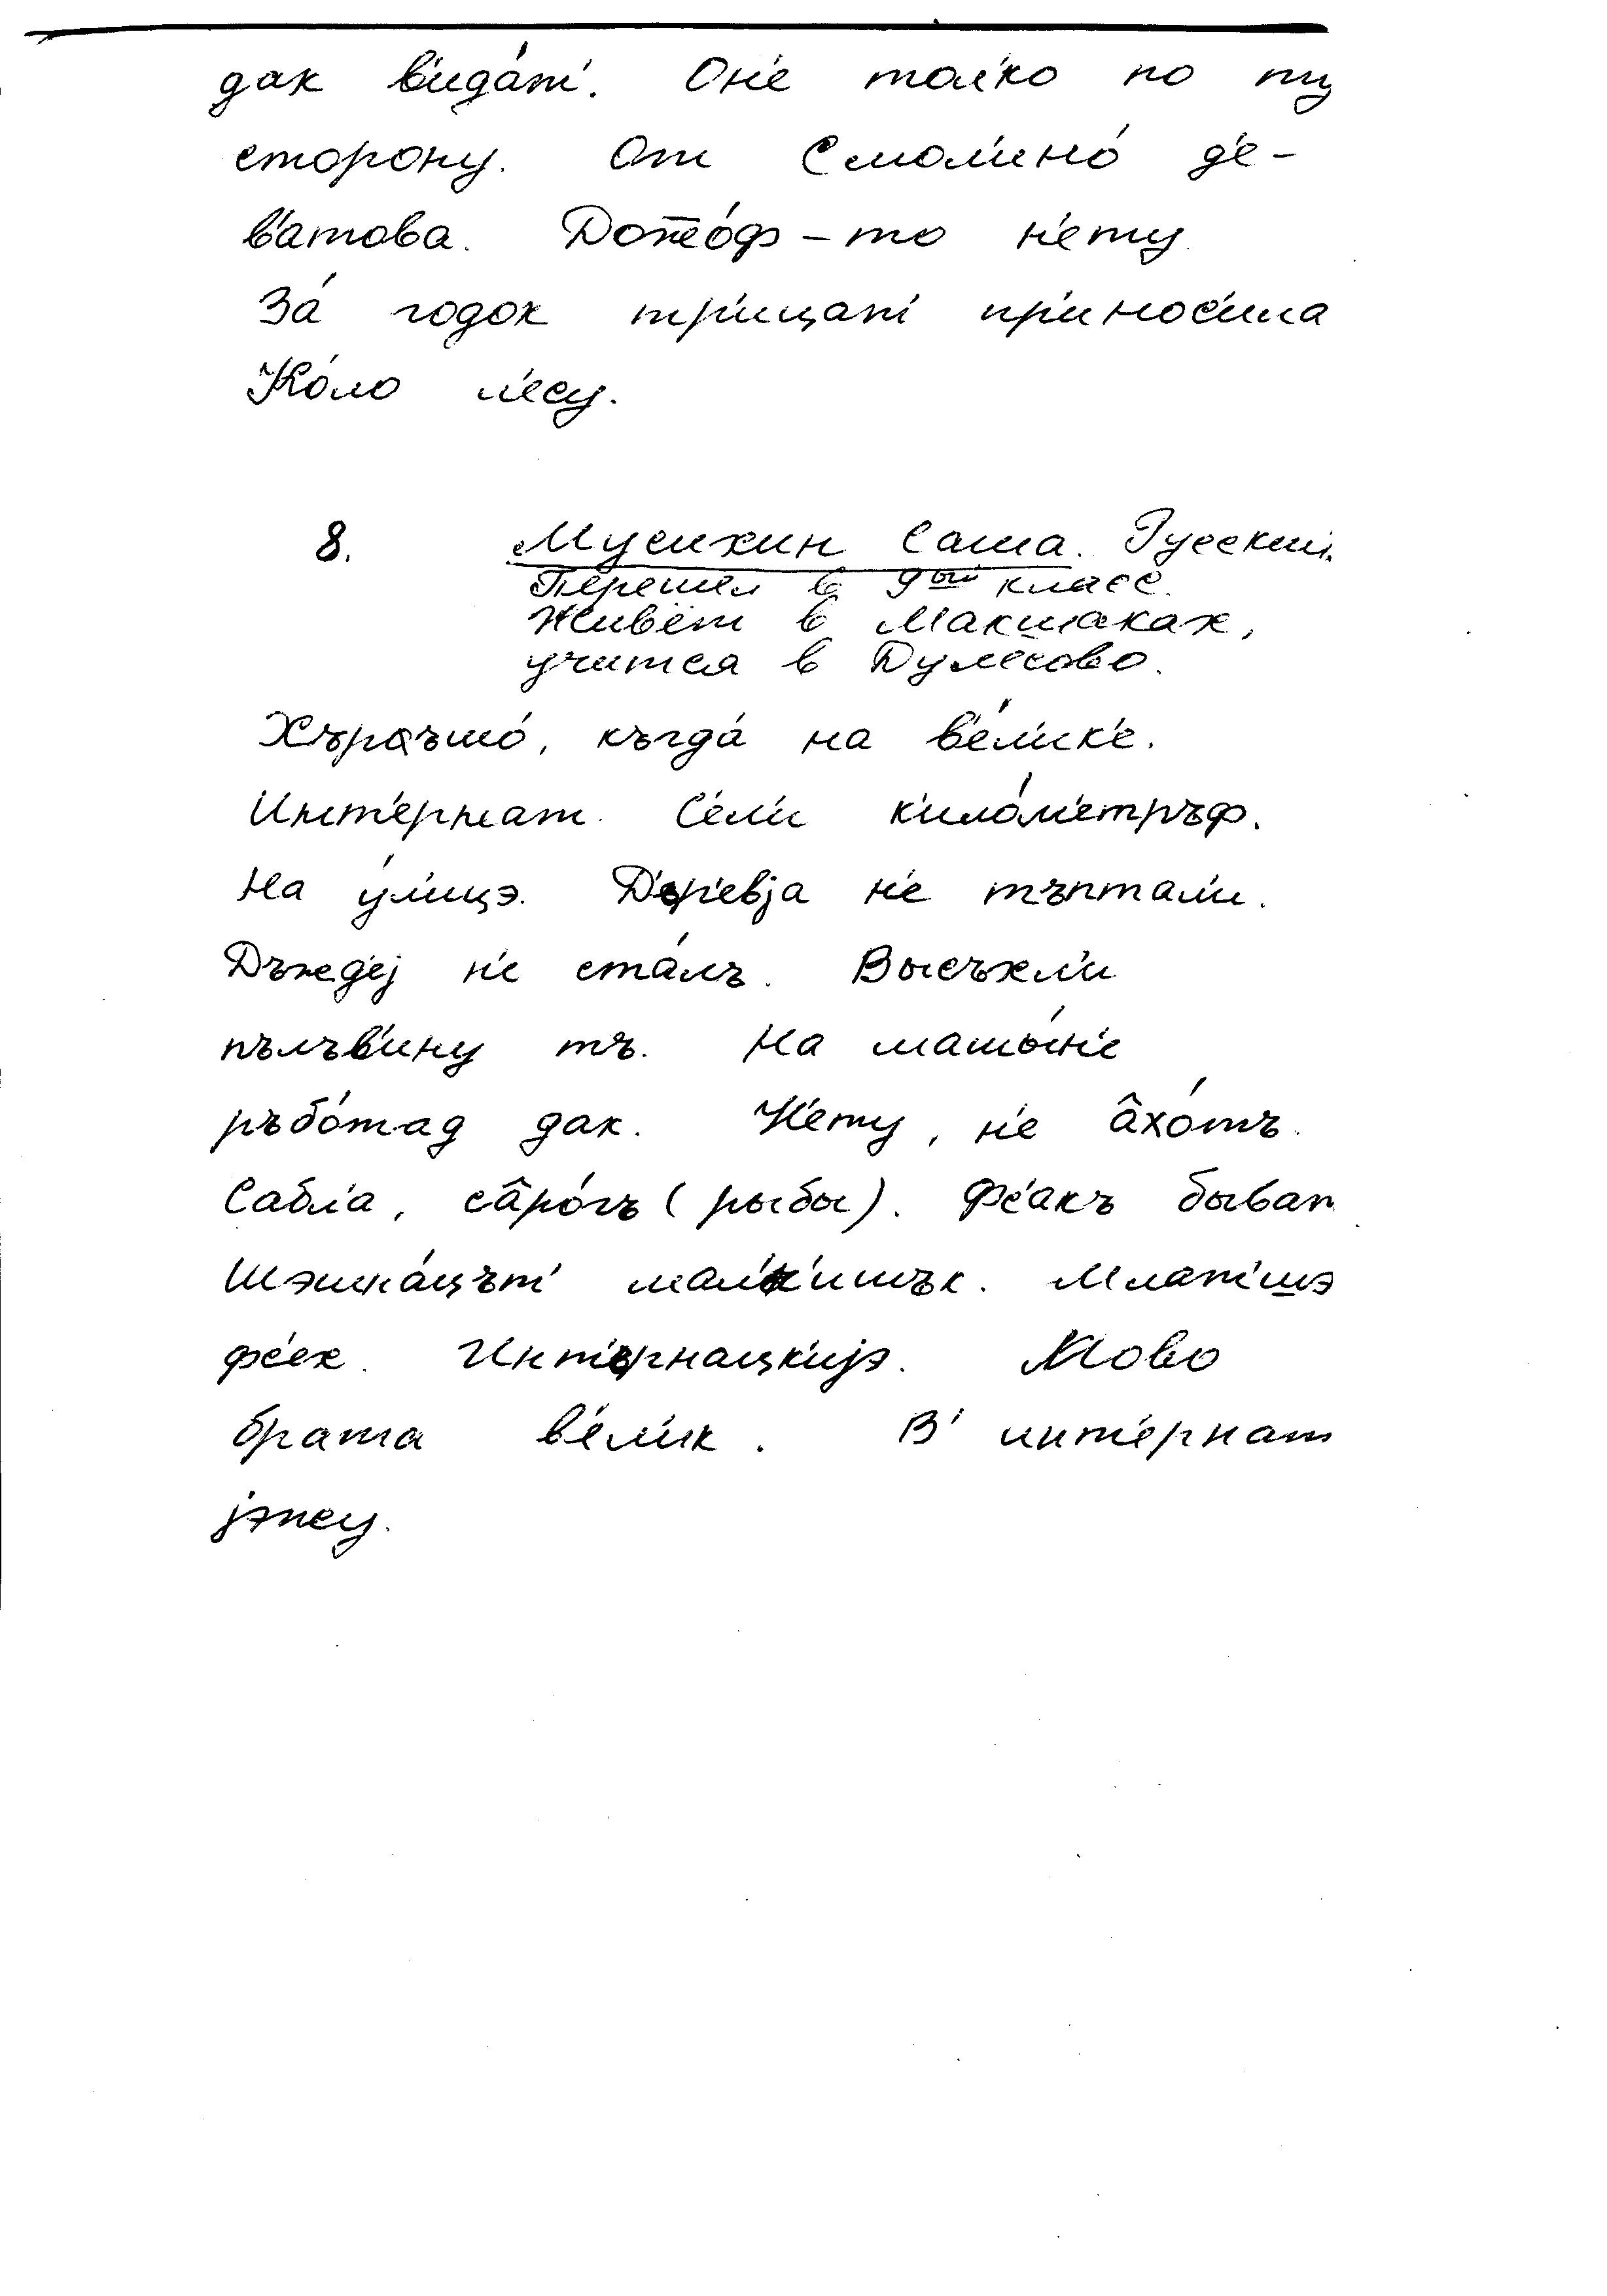 дак в'ида́т'. Он'е тол'ко по ту
сторону. От Смол'ино́ д'е-
в'атова. Дотео́ф-то н'ету.
За́ годок тр'ицат' пр'инос'ила
Ко́ло л'есу.
8. Мусихин Саша. Русский.
Перешел в 9ый класс.
Живёт в Макшаках,
учится в Дулёсово.
Хърашо́, къгда́ на в'е́л'ик'е.
Инт'ернат. С'ем'и к'ило́м'етръф.
На у́л'ицэ. Д'ер'евја н'е тъптал'и.
Дъжд'еј н'е ста́лъ. Высъхл'и
пълъв'ину тъ. На машы́н'е
ръбо́тад дак. Н'ету, н'е ахо́тъ.
Сабл'а, саро́гъ (рыбы). Фс'акъ быват
Шэшна́цът' мал'ч'ишък. Млат'шэ
фс'ех. Инт'ернацк'ијэ. Мово
брата в'ел'ик. В' инт'ернат
јэпсу.